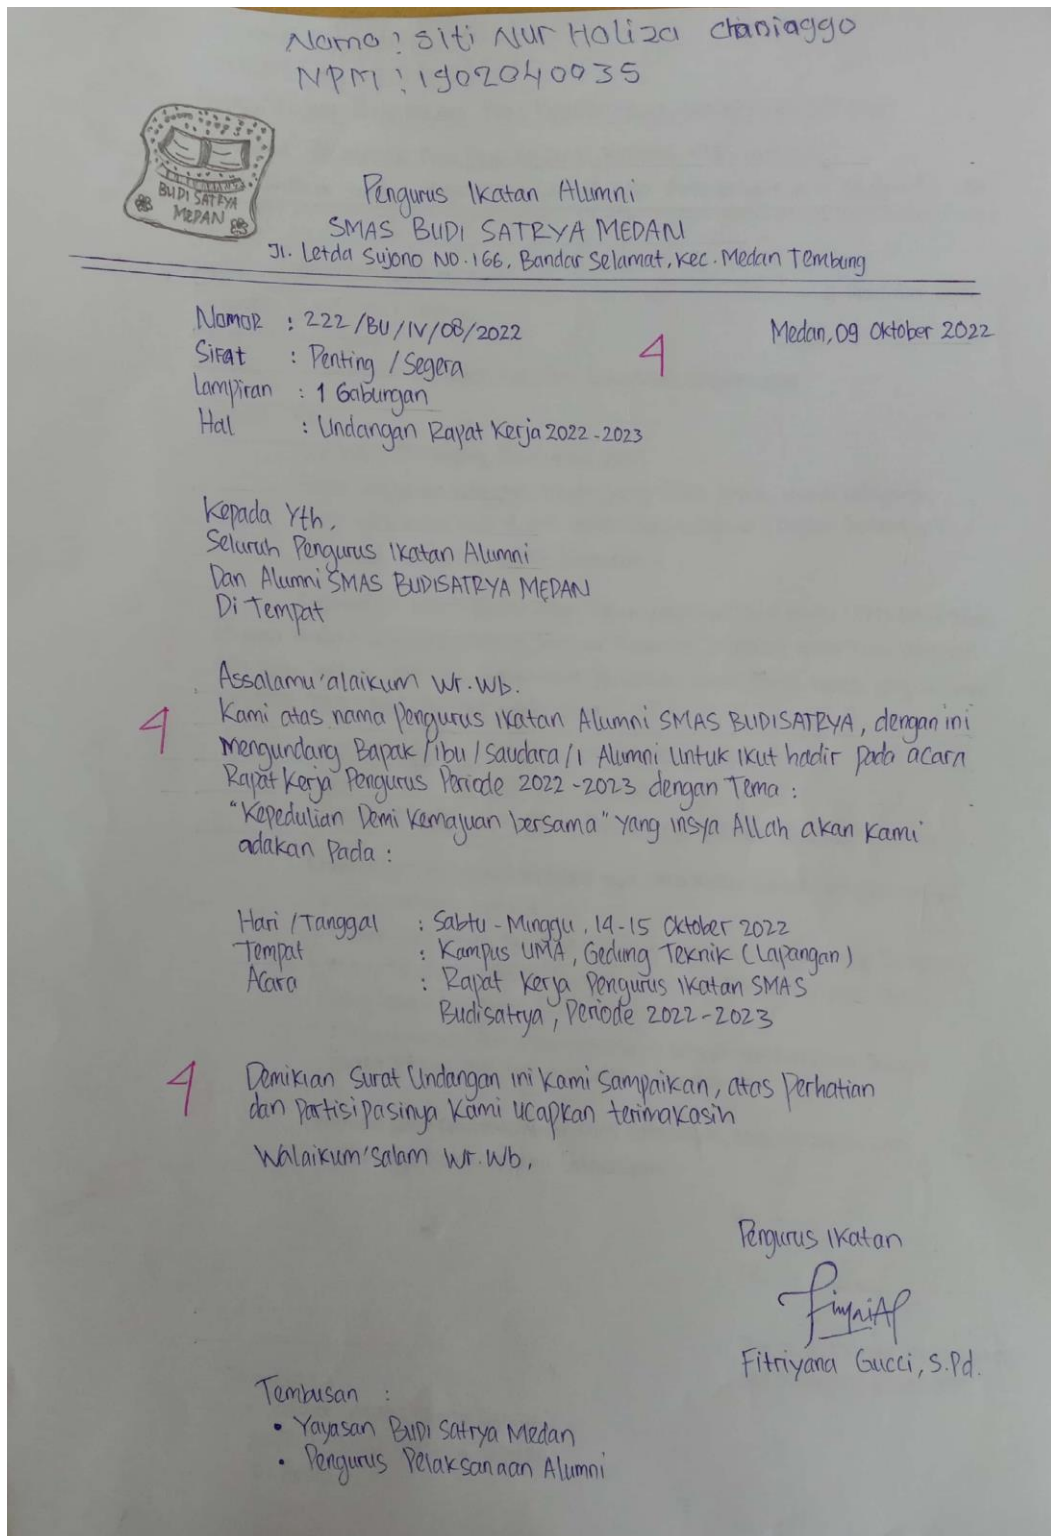 Nama : Siti Nur Holiza Chaniaggo
NPM : 1902040035
BUDI SATRYA
MEDAN
Pengurus Ikatan Alumni
SMAS BUDI SATRYA MEDAN
Jl. Letda Sujono NO.166, Bandar Selamat, Kec. Medan Tembung
Nomor : 222/BU/IV/08/2022
Medan, 09 Oktober 2022
4
Sifat : Penting / Segera
Lampiran : 1 Gabungan
Hal : Undangan Rapat Kerja 2022-2023
Kepada Yth,
Seluruh Pengurus Ikatan Alumni
Dan Alumni SMAS BUDISATRYA MEDAN
Di Tempat
Assalamu'alaikum Wr.Wb.
4
Kami atas nama Pengurus Ikatan Alumni SMAS BUDISATRYA, dengan ini
Mengundang Bapak/Ibu/Saudara/i Alumni Untuk Ikut hadir pada acara
Rapat Kerja Pengurus Periode 2022-2023 dengan Tema :
"Kepedulian Demi Kemajuan bersama" yang insya Allah akan Kami
adakan Pada :
Hari / Tanggal : Sabtu - Minggu, 14-15 Oktober 2022
Tempat : Kampus UMA, Gedung Teknik (Lapangan)
Acara : Rapat Kerja Pengurus Ikatan SMAS
Budisatrya, Periode 2022-2023
4
Demikian Surat Undangan ini Kami Sampaikan, atas Perhatian
dan Partisipasinya Kami ucapkan terimakasih
Walaikum'salam Wr.Wb,
Pengurus Ikatan
Fitriyana Gucci, S.Pd.
Tembusan :
• Yayasan Budi Satrya Medan
• Pengurus Pelaksanaan Alumni